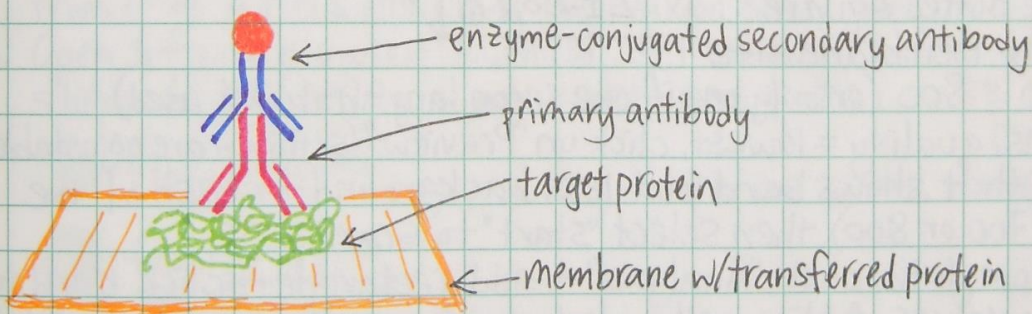 enzyme-conjugated secondary antibody
primary antibody
target protein
membrane w/transferred protein